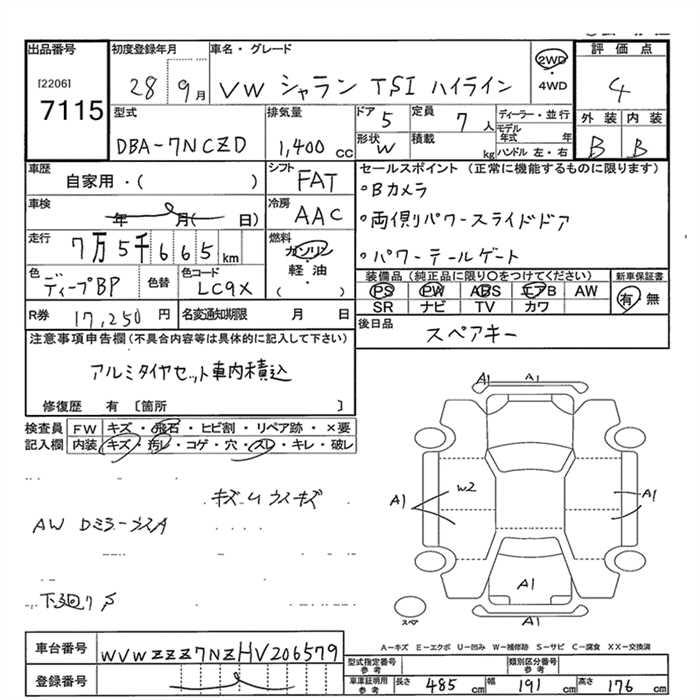 出品番号 初度登録年月 車名・グレード 評価点
[2206] 7115 28 9月 VW シャラン TSI ハイライン 2WD・4WD 4
型式 排気量 ドア 5 定員 7人 ディーラー・並行 外装 内装
DBA-7NCZD 1,400cc 形状 W 積載 kg モデル年式 年 ハンドル 左・右 B B
車歴 自家用・( ) シフト FAT セールスポイント (正常に機能するものに限ります)
車検 年 月( 日) 冷房 AAC °Bカメラ
°両側パワースライドドア
走行 7万5千665km 燃料 ガソリン・軽油・( ) °パワーテールゲート
色 ディープBP 色替 色コード LC9X 装備品 (純正品に限り○をつけてください) 新車保証書
PS PW ABS エアB AW 有・無
SR ナビ TV カワ
R券 17,250円 名変通知期限 月 日 後日品 スペアキー
注意事項申告欄 (不具合内容等は具体的に記入して下さい)
アルミタイヤセット車内積込
修復歴 有 [箇所 ]
検査員 FW キズ・飛石・ヒビ割・リペア跡・×要
記入欄 内装 キズ・汚レ・コゲ・穴・スレ・キレ・破レ
A1 A1
W2 A1 A1
AW DミラーウスA
A1
スペア A1
A-キズ E-エクボ U-凹み W-補修跡 S-サビ C-腐食 XX-交換済
車台番号 WVWZZZ7NZHV206579 型式指定番号 参考 類別区分番号 参考
登録番号 車庫証明用 参考 長さ 485cm 幅 191cm 高さ 176cm